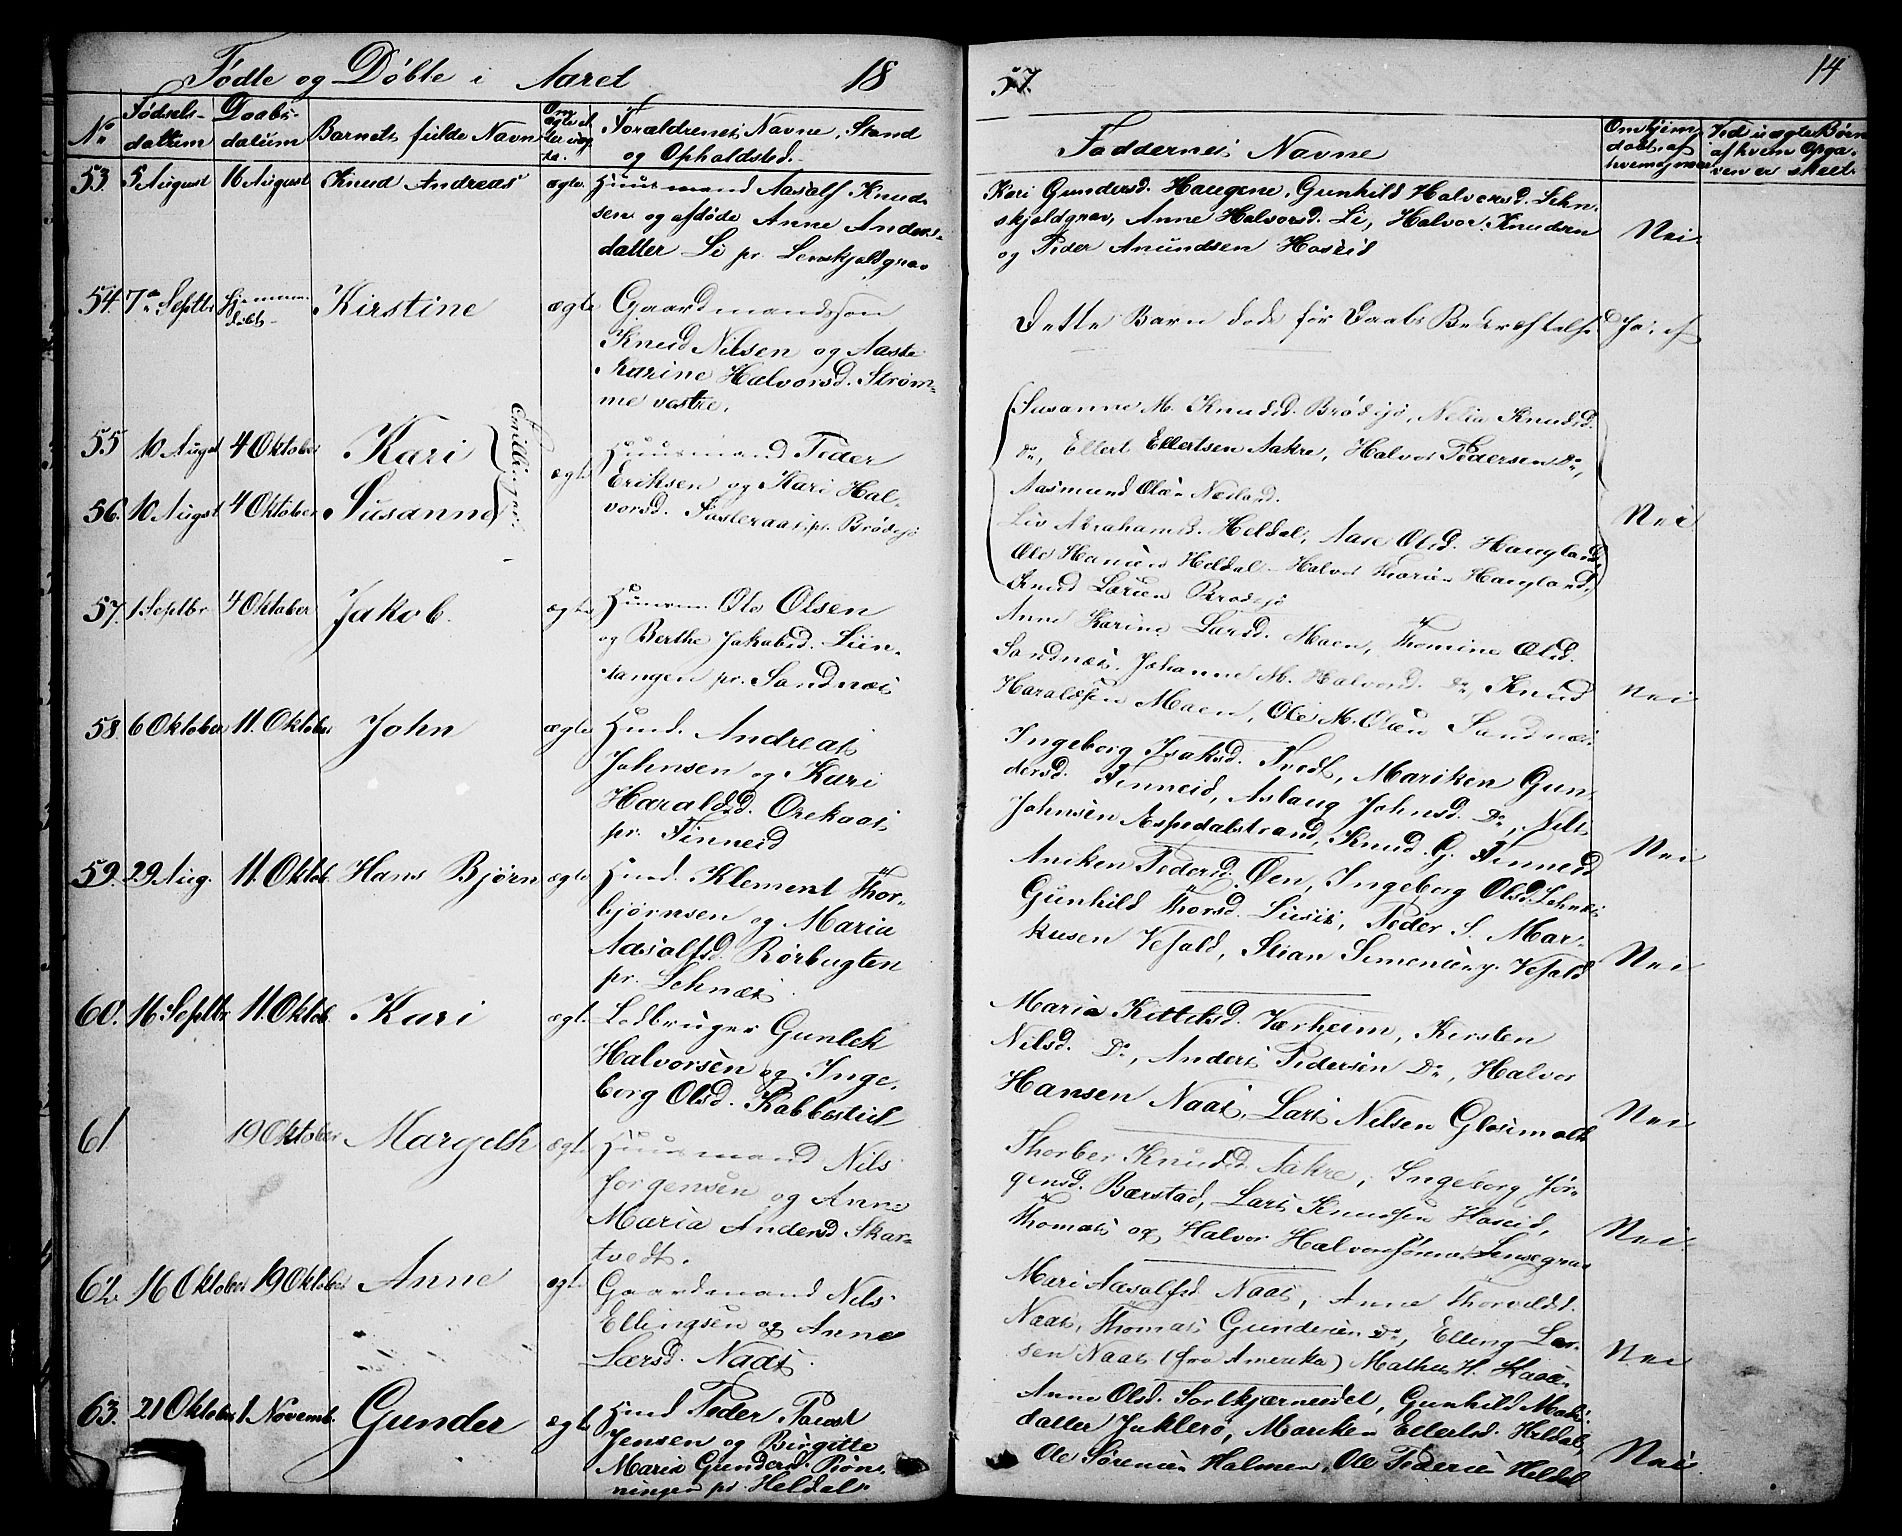 Födte og Döbte i Aaret 18
57.
14
No
Fødsels-
datum
Daabs-
datum
Barnets fulde Navn
Om
ægte el
ler uæg
te.
Forældrenes Navne, Stand
og Opholdsted.
Faddernes Navne
Om hjem
døbt af
hvem og naar
Ved uægte Børn
af hvem Opga-
ven er skeet.
53. 5 August 16 August Knud Andreas ægte. Huusmand Aasolf Knud
sen og afdöde Anne Anders-
datter Li pr Lenskjoldgrav
Kari Gundersd. Haugene, Gunhild Halvorsd. Lehn-
skjoldgrav, Anne Halvorsd. Li, Halvor Knudsen
og Peder Anundsen Hoseid
Nei
54. 7de Septbr hjemme
döbt Kirstine ægte Gaardmandssön
Knud Nilsen og Aaste
Karine Halvorsd. Ström-
me vestre.
Dette Barn döde för Daabs Bekræftelse
Ja, af
55 10 Augst 4 Oktober Kari
56. 10 Augst 4 Oktober Susanne
Tvillinger.
ægte Huusmand Peder
Eriksen og Kari Hal-
vorsd. Fosteraas pr. Brödsjö
Susanne M. Knudsd. Brödsjö, Nelia Knudsd.
Do, Ellert Ellertsen Aakre, Halvor Pedersen Do,
Aasmund Olsen Næsland.
Liv Abrahamsd. Heldal, Aase Olsd. Haugland,
Ole Hansen Heldal, Halvor Haugland,
Knud Larsen Brödsjö
Nei
57. 1 Septbr 4 Oktober Jakob. ægte Huusm. Ole Olsen
og Berthe Jakobsd. Siin-
tangen pr. Sandnæs
Anne Karine Larsd. Moen, Thomine Olsd.
Sandnæs, Johanne M. Halvorsd. Do, Knud
Haraldsen Moen, Ole M. Olsen Sandnæs
Nei
58. 6 Oktober 11. Oktober John ægte Husd. Andreas
Johnsen og Kari
Haraldsd. Orekaas
pr. Finneid
Ingeborg Isaksd. Tvedt, Mariken Gun-
dersd. Finneid, Aslaug Johnsd. Do, Nils
Johnsen Espedalstrand, Knud G. Finneid
Nei
59. 29 Aug. 11. Oktob. Hans Bjørn ægte Husd. Klement Thor-
bjørnsen og Maria
Aasolfsd. Rörbugten
pr. Lehnæs
Aniken Pedersd. Öen, Ingeborg Olsd. Lehnæs
Gunhild Thorsd. Peder S. Mar-
kusen Vefald, Stian Simensen Vefald
Nei
60. 16 Septbr 11. Oktob. Kari ægt. Lodbruger Gunlek
Halvorsen og Inge-
borg Olsd. Rabbestul
Maria Kittelsd. Værheim, Kirsten
Nilsd. Do, Anders Pedersen Do, Halvor
Hansen Naas, Lars Nilsen Glosimodt
Nei
61 19 Oktober Margeth ægte Huusmand Nils
Jørgensen og Anne
Maria Andersd Skar-
tvedt.
Thorber Knudsd. Aakre, Ingeborg Jör-
gensd. Bærstad, Lars Knudsen Hoseid,
Thomas og Halvor Halvorsönner Lensegrav
Nei
62. 16 Oktober 19 Oktober Anne ægt. Gaardmand Nils
Ellingsen og Anne
Larsd. Naas.
Mari Aasolfsd Naas, Anne Thorvaldsd.
Naas, Thomas Gundersen Do, Elling Lar-
sen Naas (fra Amerika) Mathis H. Kaasa
Nei
63. 21 Oktober 1 Novemb. Gunder ægt. Husd Peder Faust
Jensen og Birgitte
Maria Gundersd. Rön-
ningen pr. Heldal.
Anne Olsd. Sortkjærnsedet, Gunhild
datter Jukleröe, Mariken Ellertsd. Heldal,
Ole Sörensen Holmen, Ole Pedersen Heldal
Nei